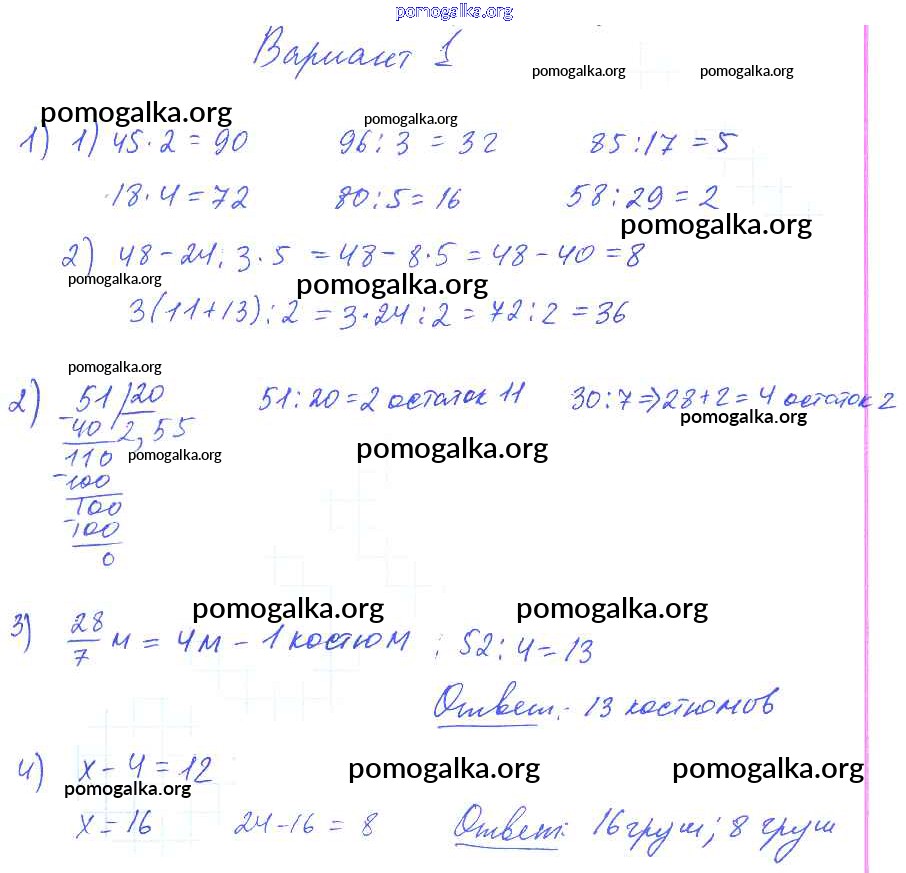 pomogalka.org
Вариант 1
pomogalka.org pomogalka.org
pomogalka.org pomogalka.org
1) 1) 45·2 = 90 96:3 = 32 85:17 = 5
18·4 = 72 80:5 = 16 58:29 = 2
pomogalka.org
2) 48-24:3·5 = 48-8·5 = 48-40 = 8
pomogalka.org pomogalka.org
3(11+13):2 = 3·24:2 = 72:2 = 36
pomogalka.org
2) 51 20 51:20=2 остаток 11 30:7⇒28+2=4 остаток 2
pomogalka.org
-40 2,55
110 pomogalka.org pomogalka.org
-100
100
-100
0
pomogalka.org pomogalka.org
3) 28/7 м = 4м - 1 костюм ; 52:4=13
Ответ: 13 костюмов
4) х-4=12 pomogalka.org pomogalka.org
pomogalka.org
х=16 24-16 = 8 Ответ: 16 груш; 8 груш